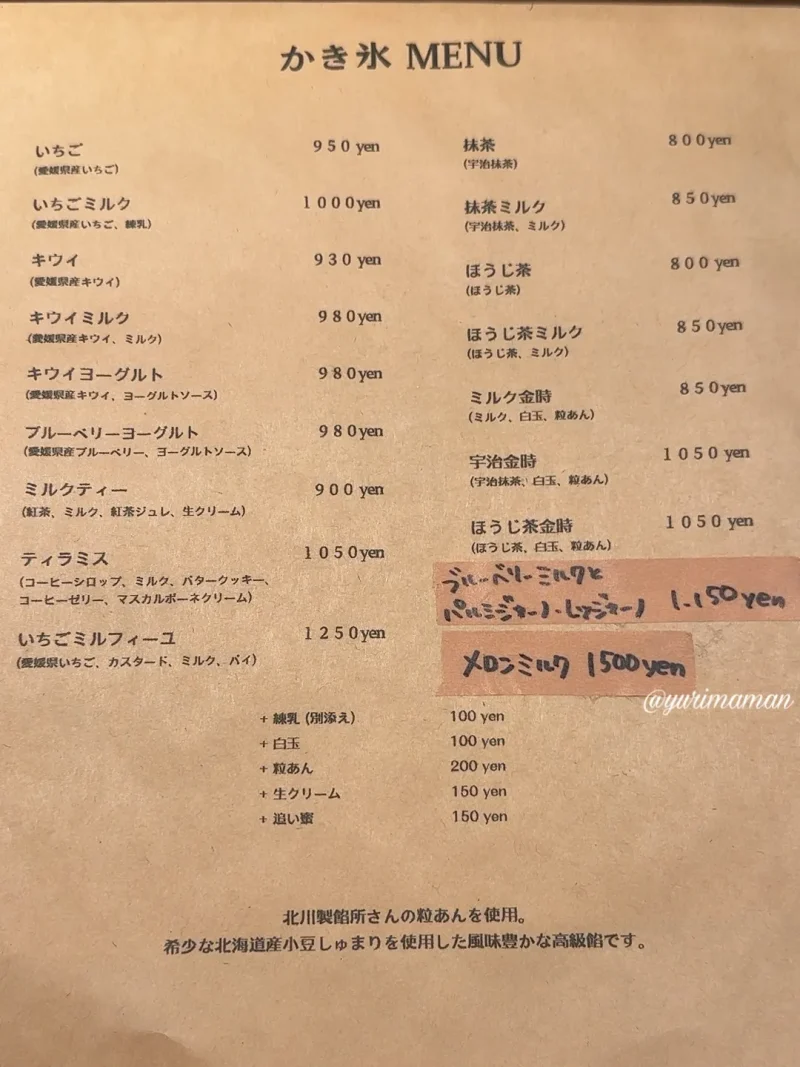 かき氷 MENU
いちご 950yen
(愛媛県産いちご)
いちごミルク 1000yen
(愛媛県産いちご、練乳)
キウイ 930yen
(愛媛県産キウイ)
キウイミルク 980yen
(愛媛県産キウイ、ミルク)
キウイヨーグルト 980yen
(愛媛県産キウイ、ヨーグルトソース)
ブルーベリーヨーグルト 980yen
(愛媛県産ブルーベリー、ヨーグルトソース)
ミルクティー 900yen
(紅茶、ミルク、紅茶ジュレ、生クリーム)
ティラミス 1050yen
(コーヒーシロップ、ミルク、バタークッキー、
コーヒーゼリー、マスカルポーネクリーム)
いちごミルフィーユ 1250yen
(愛媛県いちご、カスタード、ミルク、パイ)
抹茶 800yen
(宇治抹茶)
抹茶ミルク 850yen
(宇治抹茶、ミルク)
ほうじ茶 800yen
(ほうじ茶)
ほうじ茶ミルク 850yen
(ほうじ茶、ミルク)
ミルク金時 850yen
(ミルク、白玉、粒あん)
宇治金時 1050yen
(宇治抹茶、白玉、粒あん)
ほうじ茶金時 1050yen
(ほうじ茶、白玉、粒あん)
ブルーベリーミルクと
パルミジャーノ・レッジャーノ 1.150yen
メロンミルク 1500yen
@yurimaman
+ 練乳 (別添え) 100 yen
+ 白玉 100 yen
+ 粒あん 200 yen
+ 生クリーム 150 yen
+ 追い蜜 150 yen
北川製餡所さんの粒あんを使用。
希少な北海道産小豆しゅまりを使用した風味豊かな高級餡です。